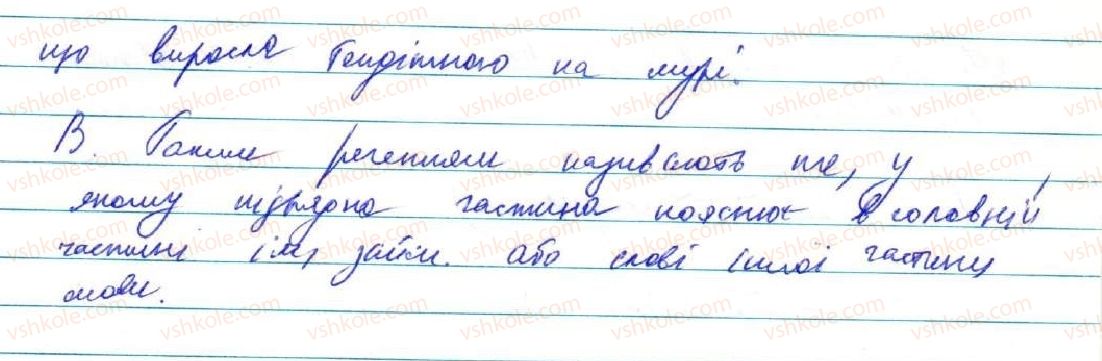 що виросла тендітною на мурі.
В. Таким реченням називають те, у
якому підрядна частина пояснює в головній
частині ім, займ. або слові іншої частини
мови.